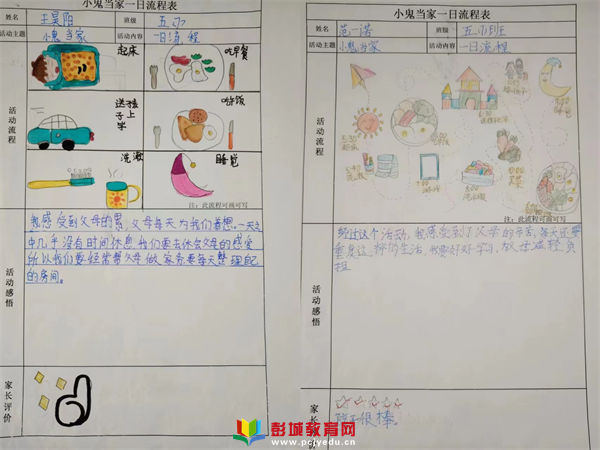 小鬼当家一日流程表
姓名 王昊阳 班级 五小
活动主题 小鬼当家 活动内容 一日流程
活动流程
起床
吃早餐
送孩子上学
吃饭
洗漱
睡觉
注：此流程可画可写
活动感悟
我感受到父母的累，父母每天为我们着想。一天之
中几乎没有时间休息，我们要去体会父母的感受
所以我们要经常帮父母做家务要每天整理自己
的房间。
家长评价
小鬼当家一日流程表
姓名 范一诺 班级 五小班
活动主题 小鬼当家 活动内容 一日流程
活动流程
注：此流程可画可写
活动感悟
经过这个活动，我感受到了父母的辛苦，每天还要
重复这样的生活，我要好好学习，放母减轻负
担
家长
孩子很棒。
彭城教育网
www.pcjyedu.cn